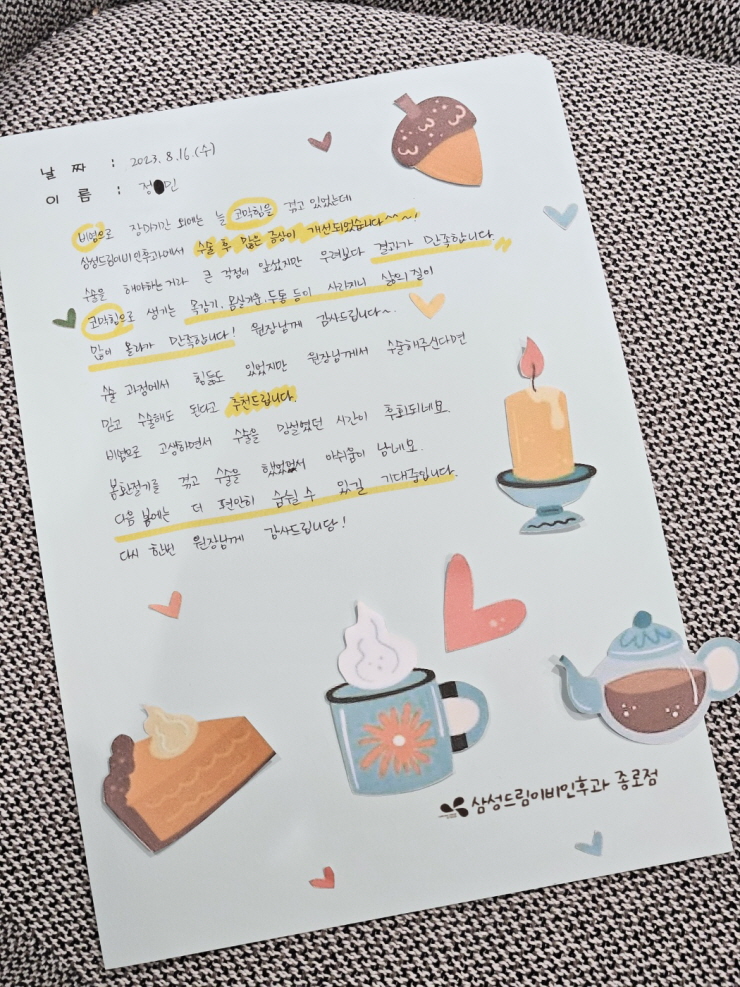 날 짜 : 2023. 8. 16. (수)
이 름 : 정 민
비염으로 장마기간 외에는 늘 코막힘을 겪고 있었는데
삼성드림이비인후과에서 수술 후 많은 증상이 개선되었습니다~~!
수술을 해야하는거라 큰 걱정이 앞섰지만 우려보다 결과가 만족합니다
코막힘으로 생기는 목감기, 몸살기운, 두통 등이 사라지니 삶의 질이
많이 올라가 만족합니다! 원장님께 감사드립니다~.
수술 과정에서 힘듦도 있었지만 원장님께서 수술해주신다면
믿고 수술해도 된다고 추천드립니다.
비염으로 고생하면서 수술을 망설였던 시간이 후회되네요.
봄환절기를 겪고 수술을 했었어서 아쉬움이 남네요.
다음 봄에는 더 편안히 숨쉴 수 있길 기대중입니다.
다시 한번 원장님께 감사드립니당!
삼성드림이비인후과 종로점